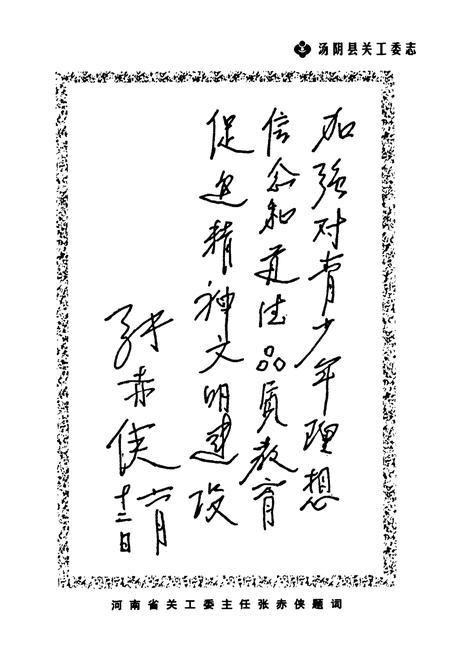 汤阴县关工委志
加强对青少年理想
信念和道德品质教育
促进精神文明建设
张赤侠
六月
十二日
河南省关工委主任张赤侠题词